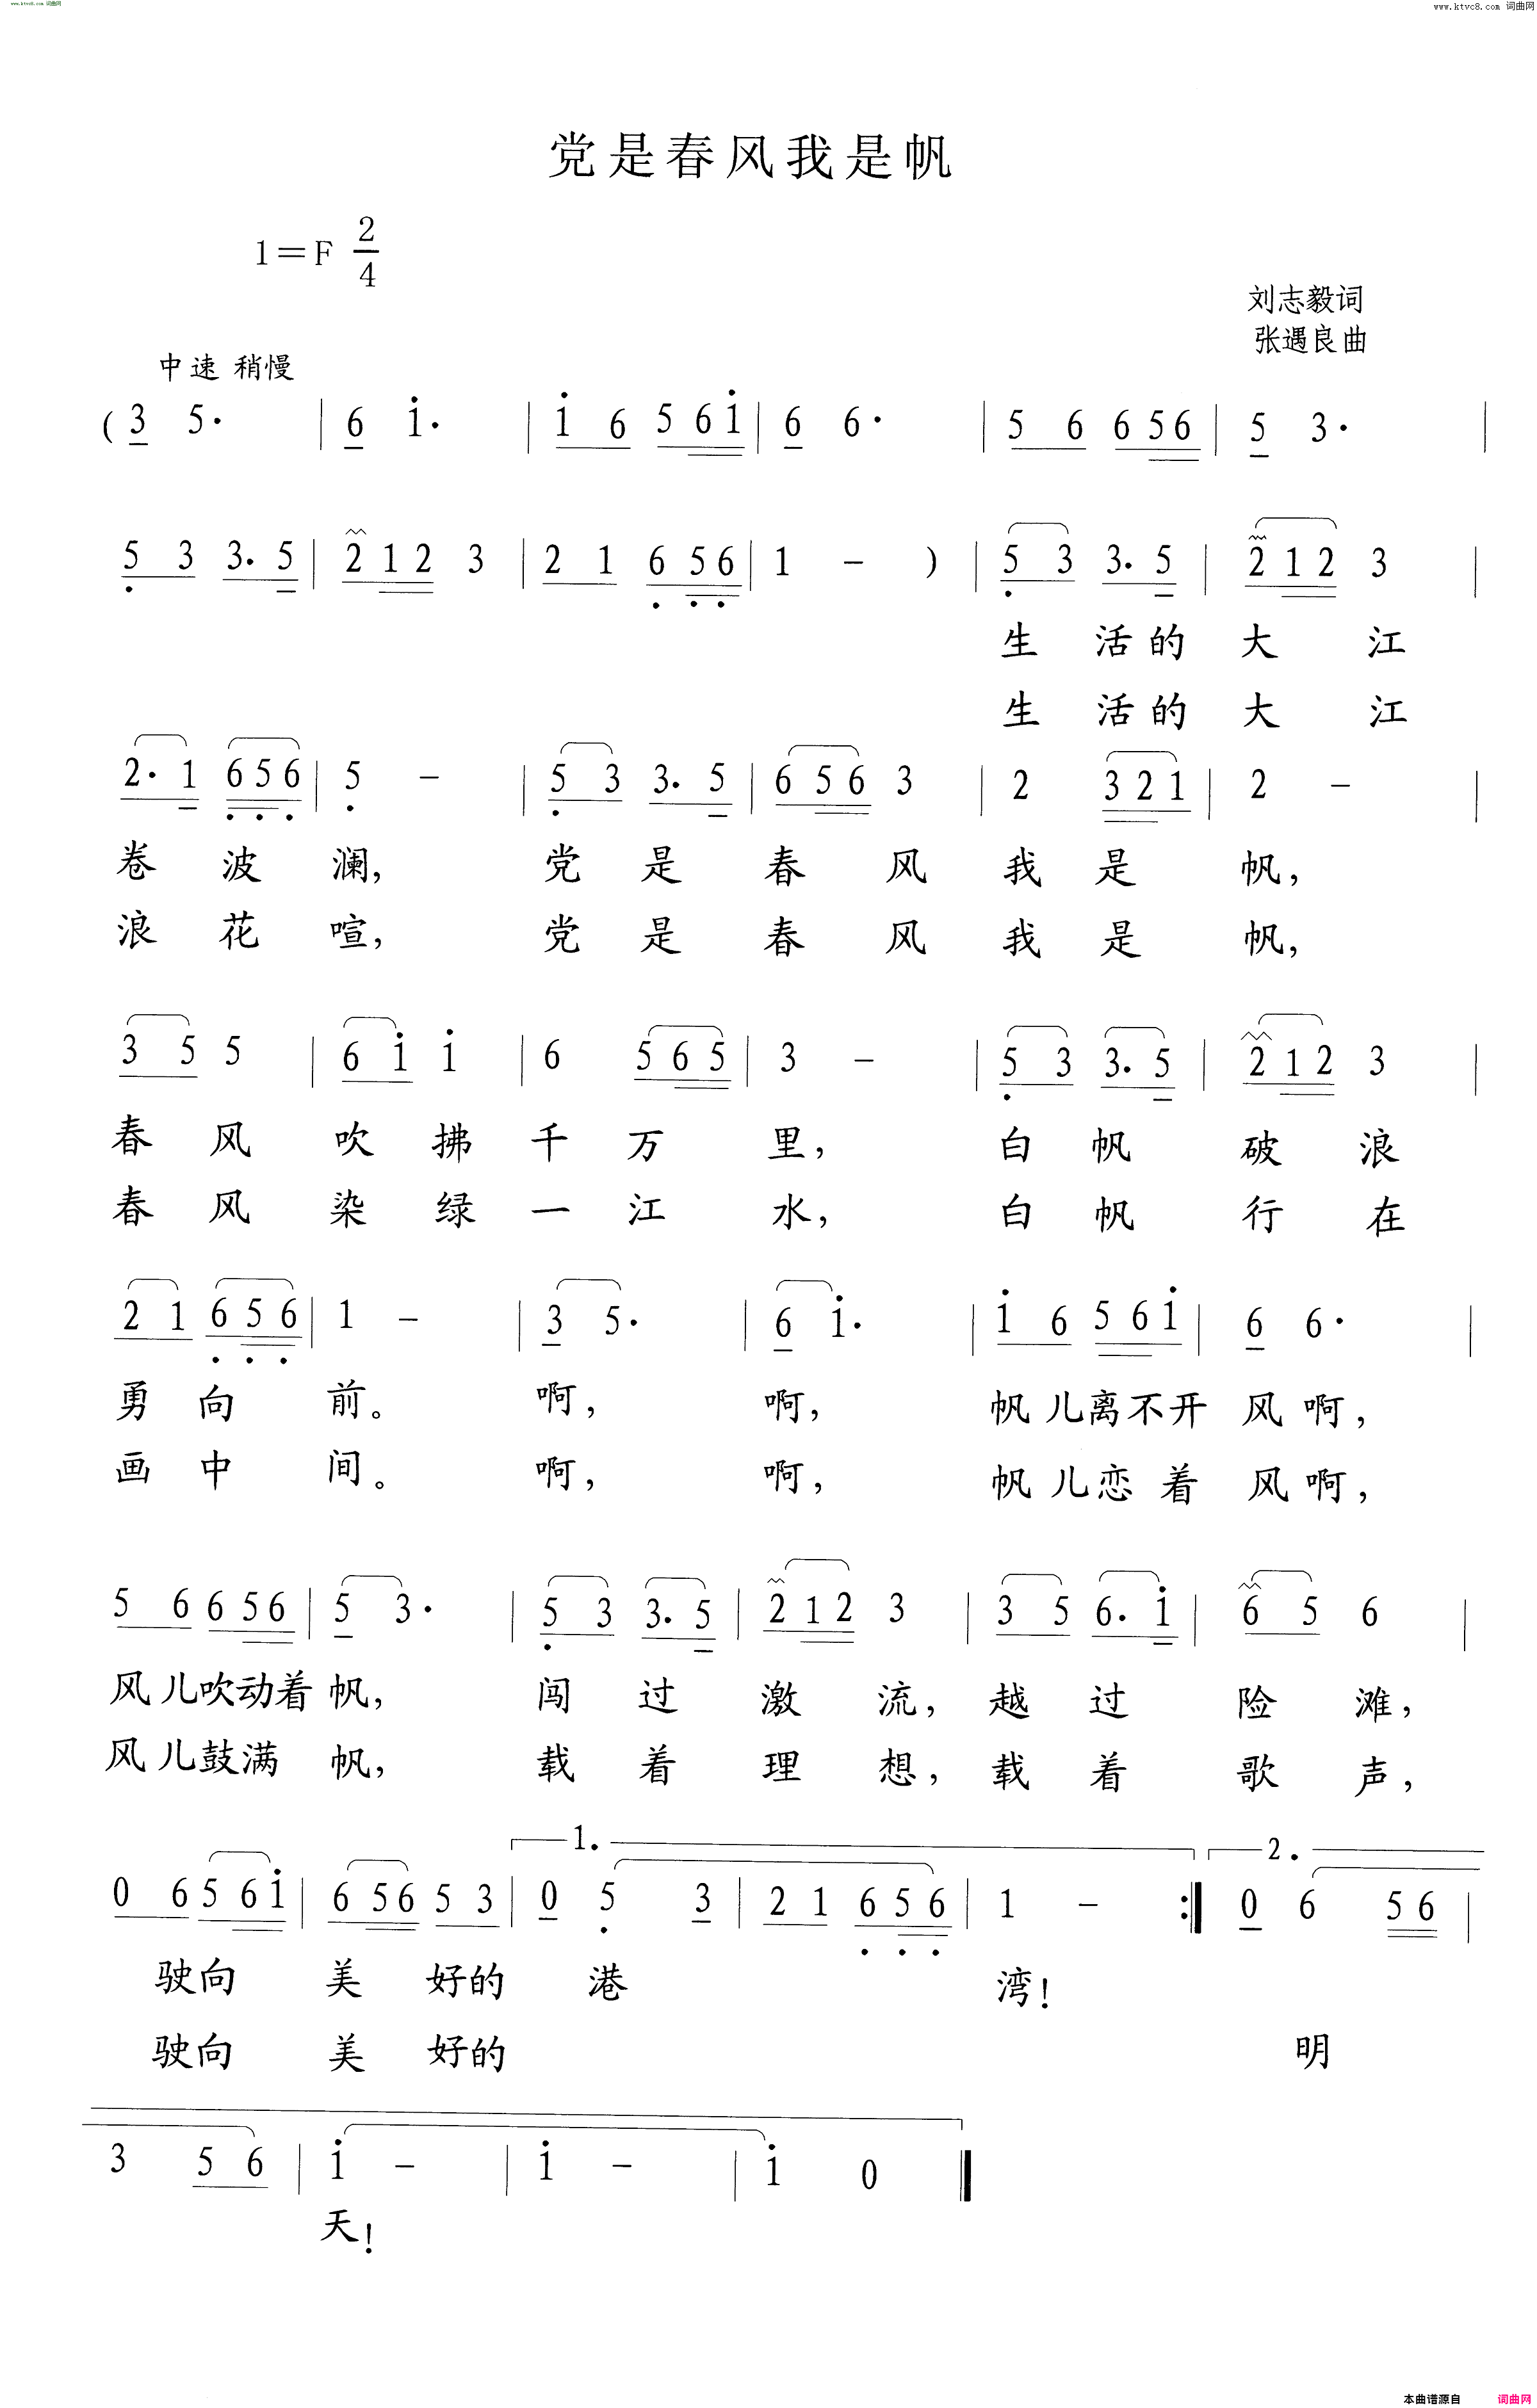 www.ktvc8.com 词曲网
www.ktvc8.com 词曲网
党是春风我是帆
1=F 2/4
刘志毅词
张遇良曲
中速 稍慢
( 3 5· | 6 i· | i 6 5 6 i | 6 6· | 5 6 6 5 6 | 5 3· |
5 3 3· 5 | 2 1 2 3 | 2 1 6 5 6 | 1 - ) | 5 3 3· 5 | 2 1 2 3 |
生 活 的 大 江
生 活 的 大 江
2· 1 6 5 6 | 5 - | 5 3 3· 5 | 6 5 6 3 | 2 3 2 1 | 2 - |
卷 波 澜, 党 是 春 风 我 是 帆,
浪 花 喧, 党 是 春 风 我 是 帆,
3 5 5 | 6 i i | 6 5 6 5 | 3 - | 5 3 3· 5 | 2 1 2 3 |
春 风 吹 拂 千 万 里, 白 帆 破 浪
春 风 染 绿 一 江 水, 白 帆 行 在
2 1 6 5 6 | 1 - | 3 5· | 6 i· | i 6 5 6 i | 6 6· |
勇 向 前。 啊, 啊, 帆儿离不开 风啊,
画 中 间。 啊, 啊, 帆儿恋着 风啊,
5 6 6 5 6 | 5 3· | 5 3 3· 5 | 2 1 2 3 | 3 5 6· i | 6 5 6 |
风儿吹动着 帆, 闯 过 激 流, 越 过 险 滩,
风儿鼓满 帆, 载 着 理 想, 载 着 歌 声,
1. 2.
0 6 5 6 i | 6 5 6 5 3 | 0 5 3 | 2 1 6 5 6 | 1 - :| 0 6 5 6 |
驶向 美 好的 港 湾!
驶向 美 好的 明
3 5 6 | i - | i - | i 0 ‖
天!
本曲谱源自 词曲网